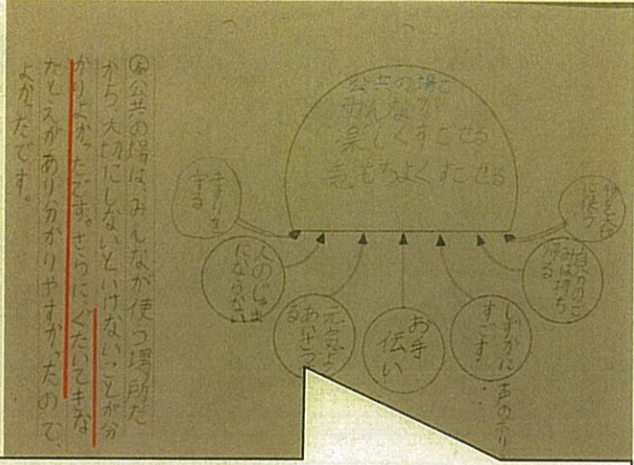 公共の場で
みんなが
楽しくすごせる
気もちよくすごせる
物を大切
に使う
自分のご
みは持ち
帰る
しずかに
すごす
お手
伝い
元気よく
あいさつ
する
人のじゃま
にならない
きまりを
守る
公共の場は、みんなが使う場所だ
から、大切にしないといけないことが分
かりよかったです。さらに、ぐたいてきな
たとえがあり分かりやすかったので、
よかったです。